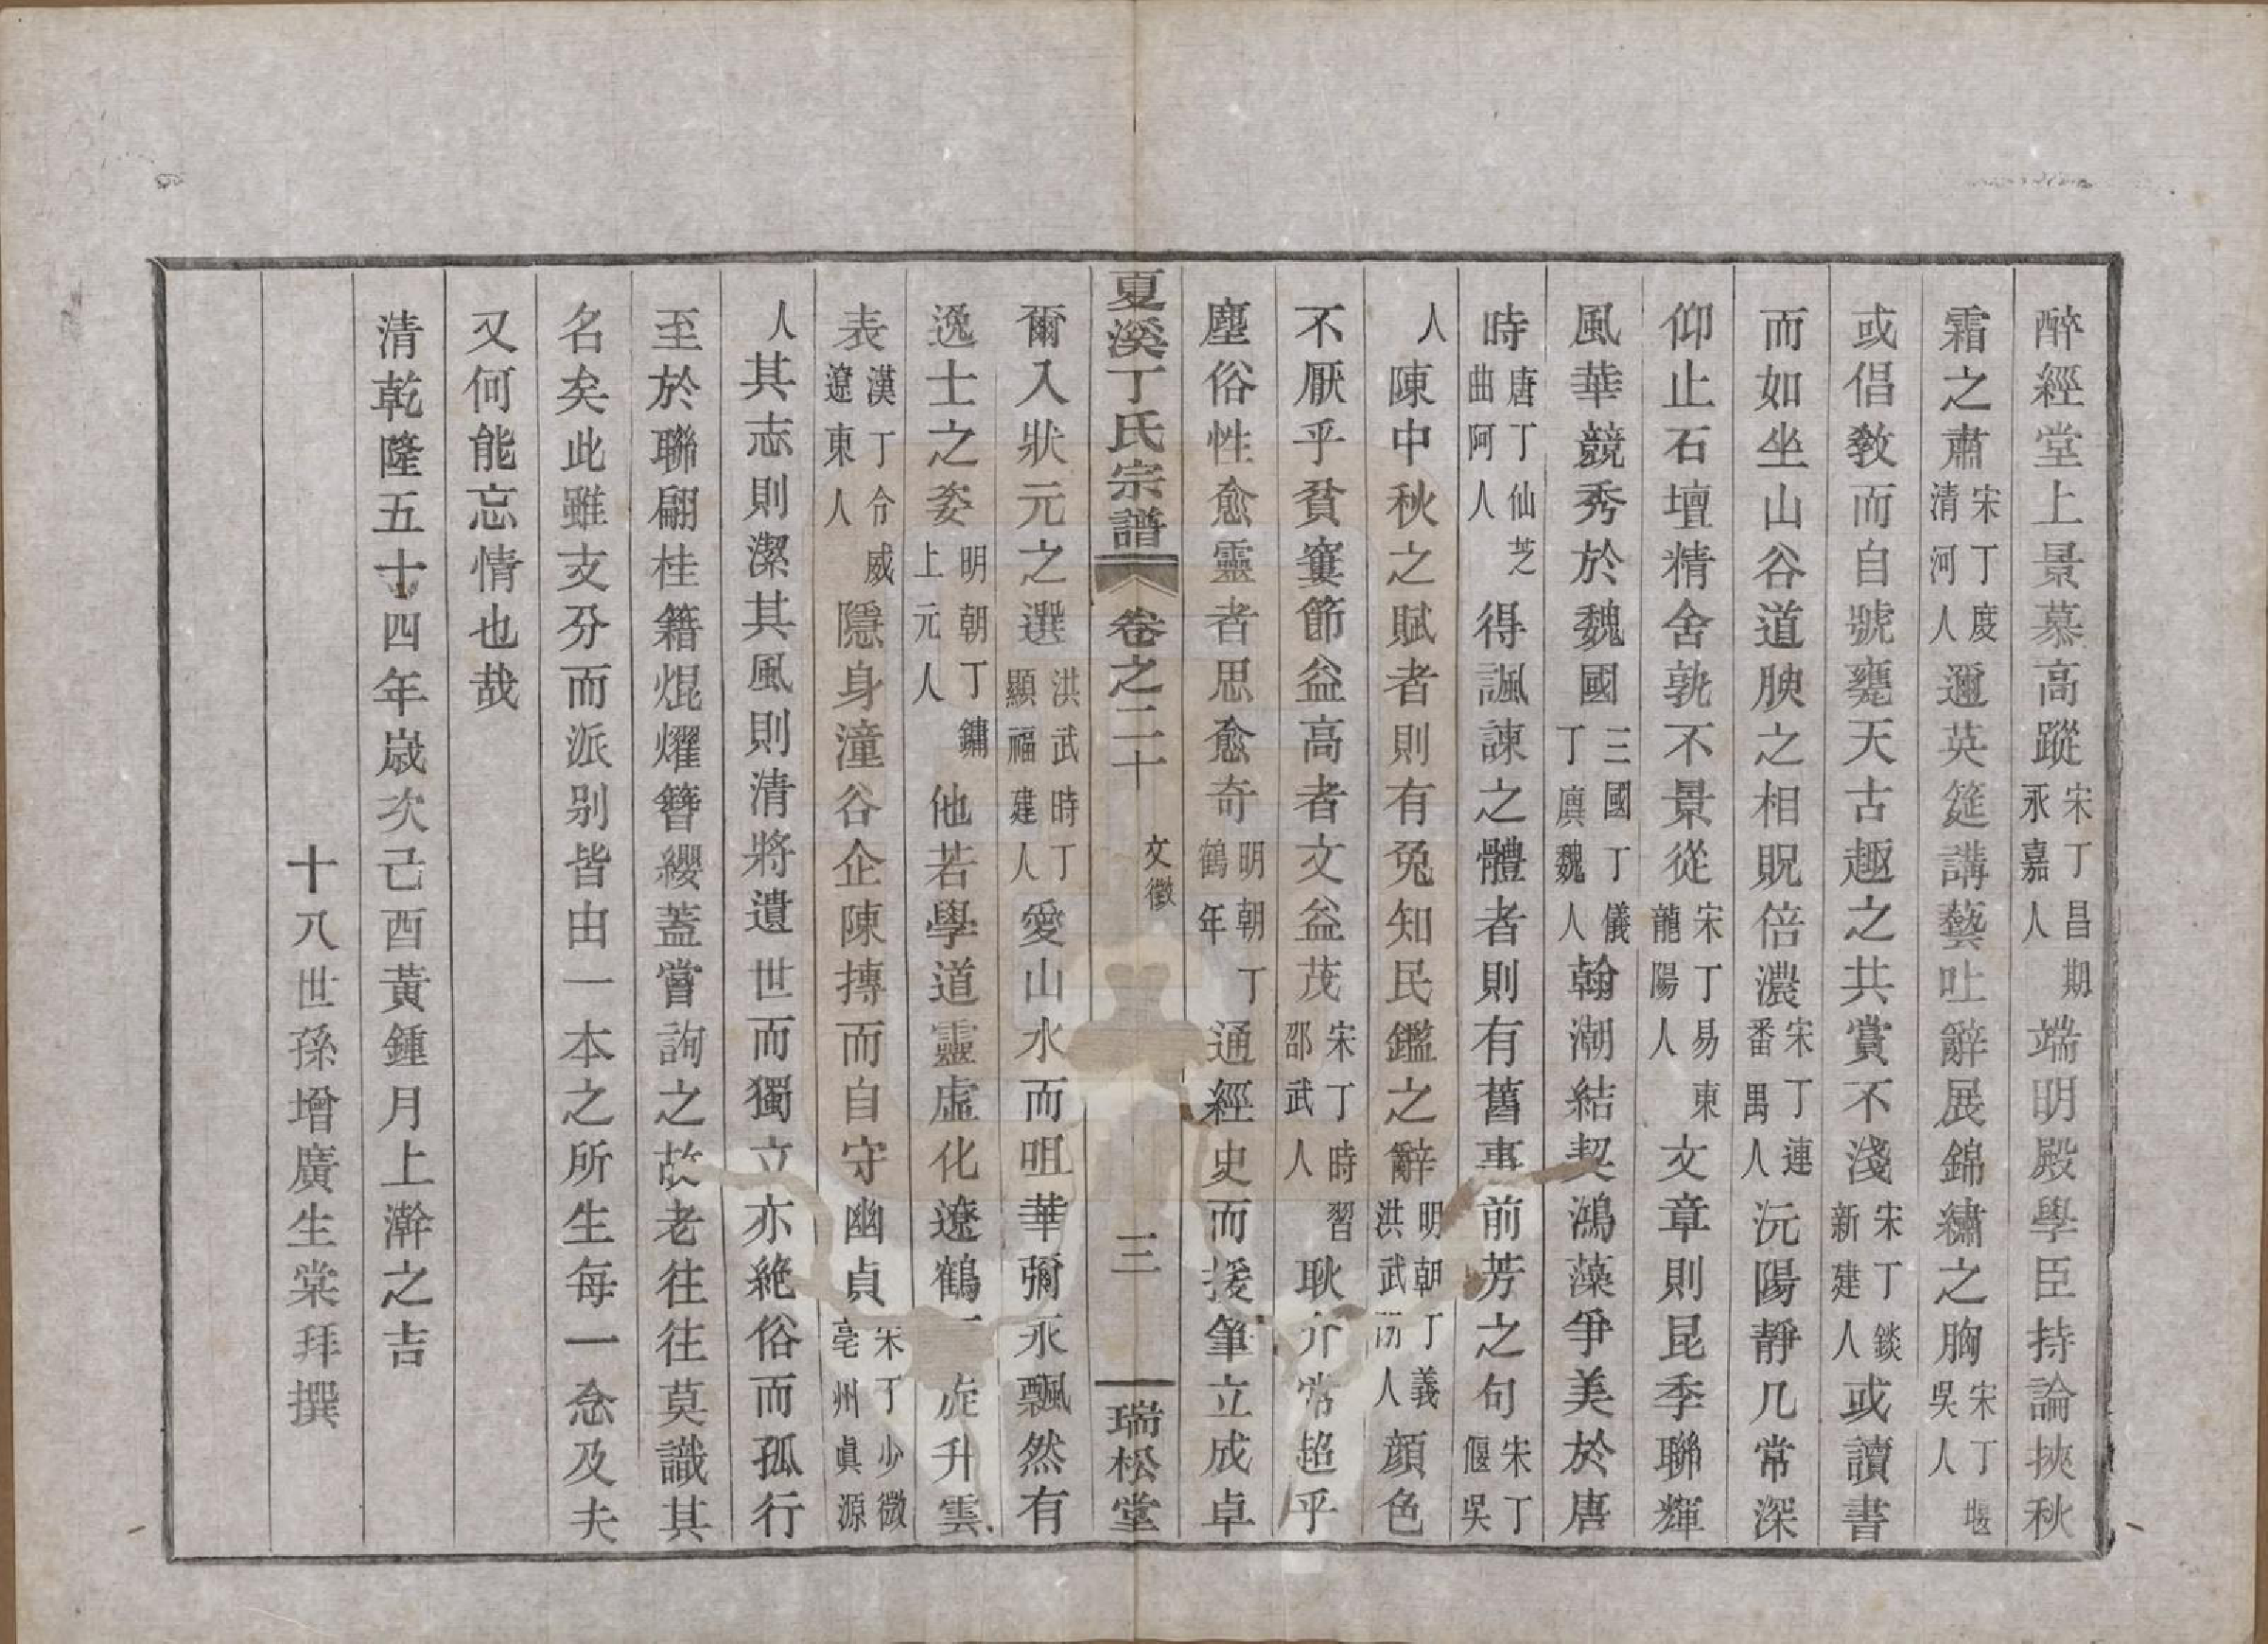 醉經堂上景慕高蹤宋丁昌期永嘉人端明殿學臣持論挾秋
霜之肅宋丁度清河人邇英筵講藝吐辭展錦繡之胸宋丁堰吳人
或倡敎而自號甕天古趣之共賞不淺宋丁錟新建人或讀書
而如坐山谷道腴之相貺倍濃宋丁連番禺人沅陽靜几常深
仰止石壇精舍孰不景從宋丁易東龍陽人文章則昆季聯輝
風華競秀於魏國三國丁儀丁廙魏人翰潮結契鴻藻爭美於唐
時唐丁仙芝曲阿人得諷諫之體者則有舊事前芳之句宋丁偃吳
人陳中秋之賦者則有兔知民鑑之辭明朝丁義洪武人顔色
不厭乎貧窶節益高者文益茂宋丁時習邵武人耿介常超乎
塵俗性愈靈者思愈奇明朝丁鶴年通經史而援筆立成卓
夏溪丁氏宗譜 卷之二十 文徵 三 瑞松堂
爾入狀元之選洪武時丁顯福建人愛山水而咀華彌永飄然有
逸士之姿明朝丁鏽上元人他若學道靈虛化遼鶴旋升雲
表漢丁令威遼東人隱身潼谷企陳摶而自守幽貞宋丁少微亳州眞源
人其志則潔其風則清將遺世而獨立亦絶俗而孤行
至於聯翩桂籍焜燿簪纓蓋嘗詢之故老往往莫識其
名矣此雖支分而派别皆由一本之所生每一念及夫
又何能忘情也哉
清乾隆五十四年歲次己酉黃鍾月上澣之吉
十八世孫增廣生棠拜撰